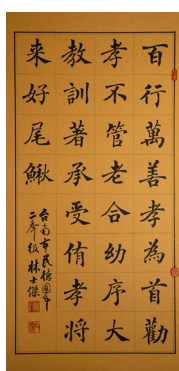 百行萬善孝為首勸
孝不管老合幼序大
教訓著承受侑孝將
来好尾鰍
台南市民德國中
二年級 林士傑